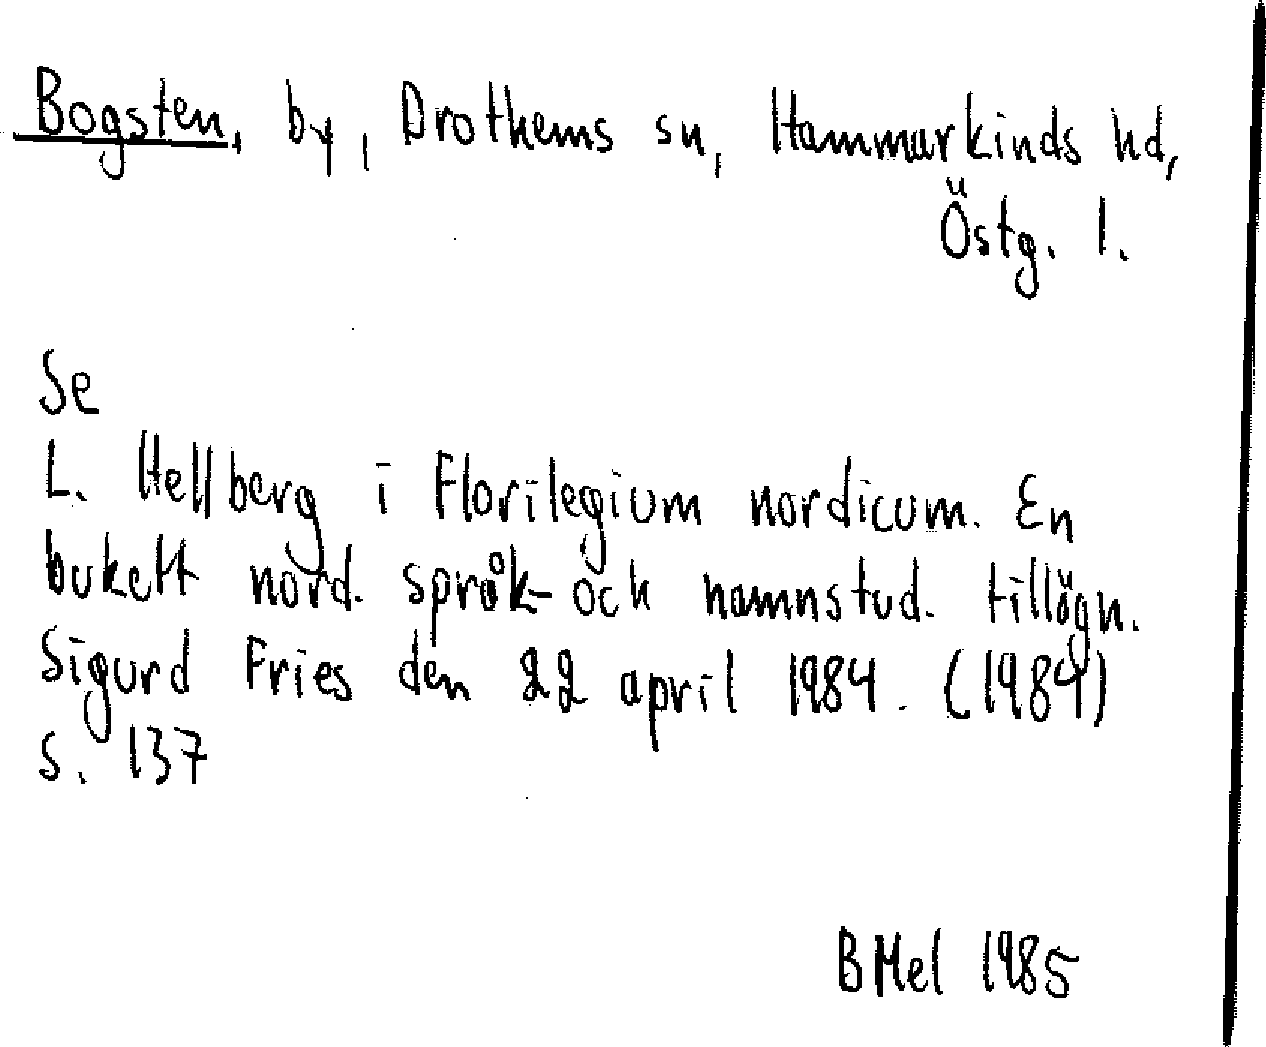 Bogsten, by, Drothems sn, Hammarkinds hd,
Östg. l.
Se
L. Hellberg i Florilegium nordicum. En
bukett nord. språk- och namnstud. tillägn.
Sigurd Fries den 22 april 1984. (1984)
s. 137
BMel 1985